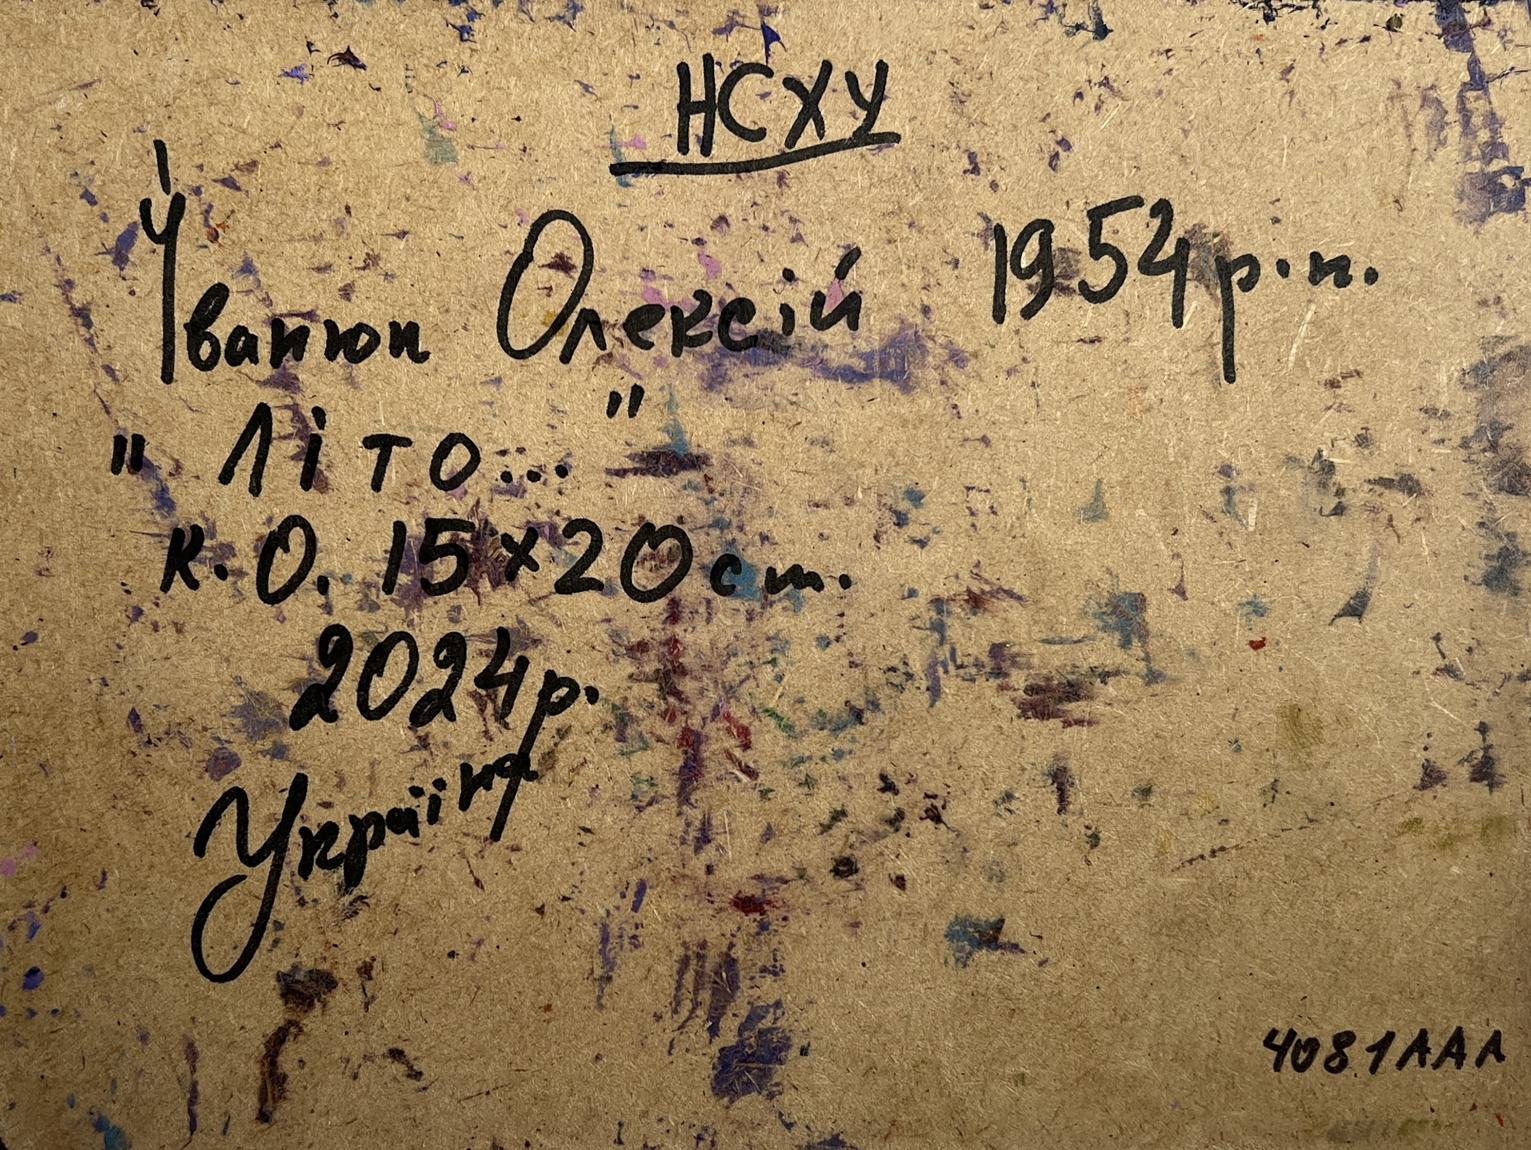 НСХУ
Іванюк Олексій 1954 р.н.
"Літо..."
к.О. 15х20 ст.
2024 р.
Україна
4081ААА